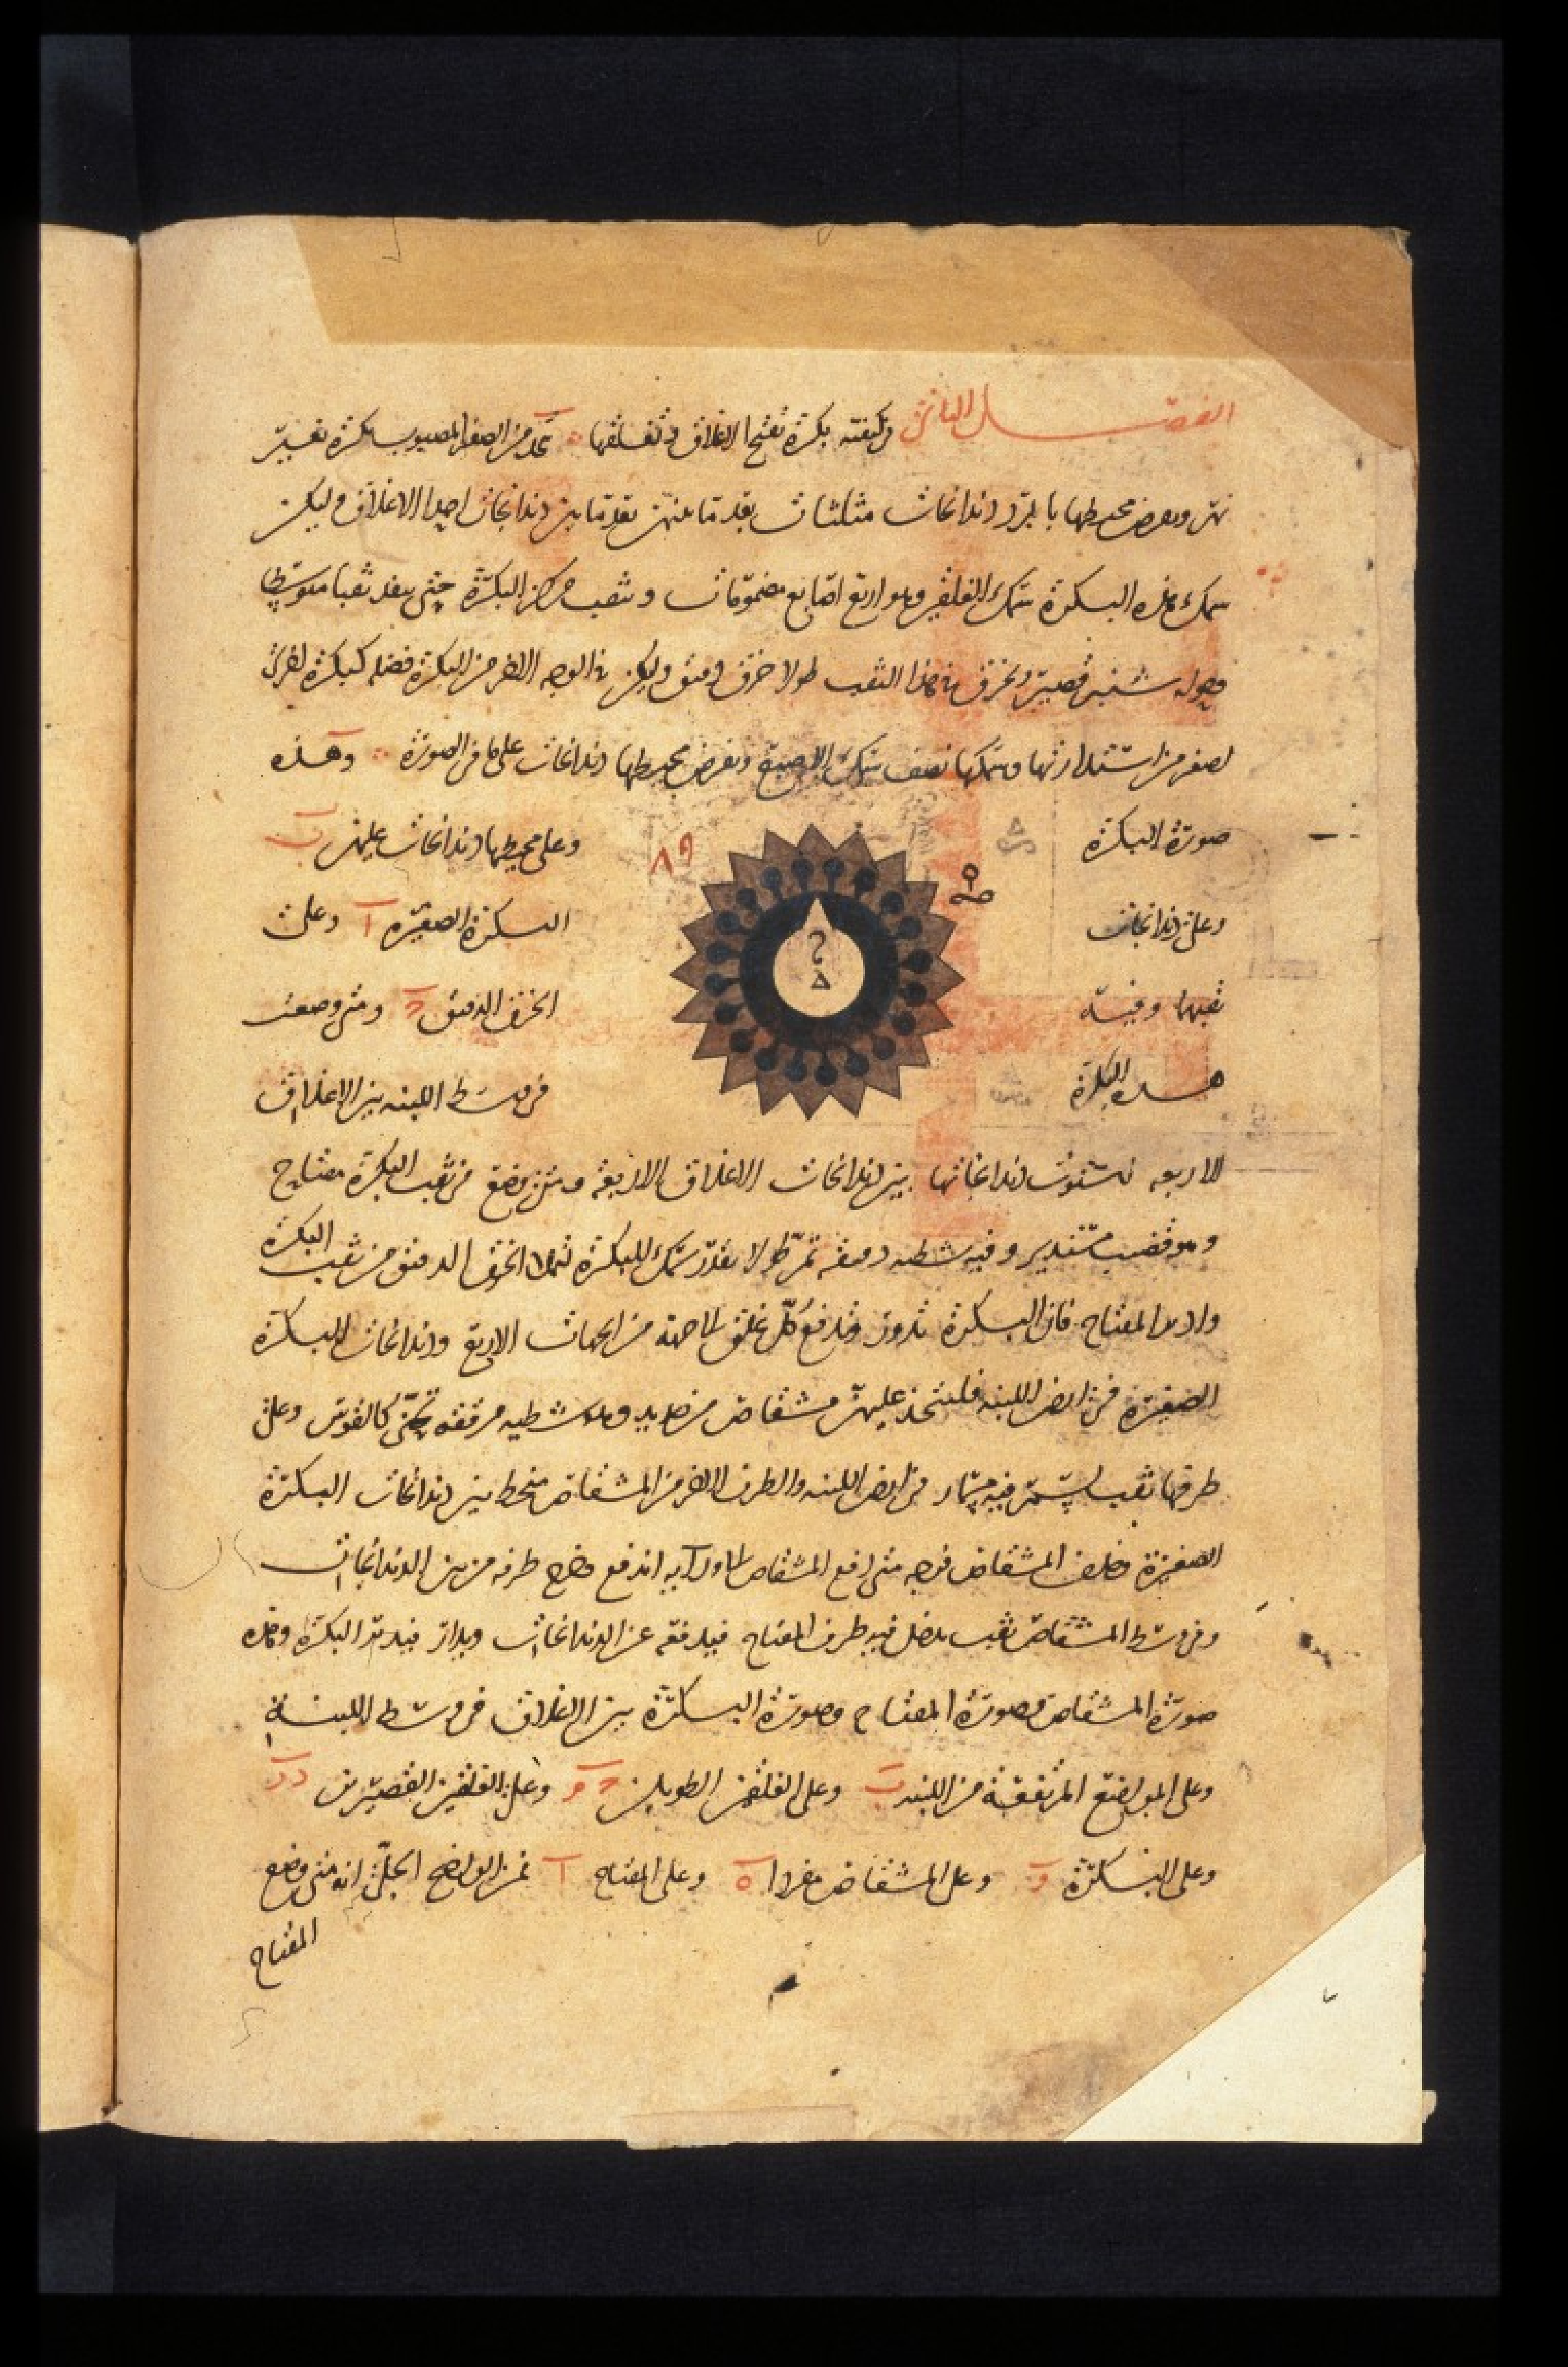 الفصل الثاني في كيفية بكرة تفتح الاغلاق وتغلقها يتخذ من الصفر المصبوب بكرة تفسير
نهر ويفرض بمحيطها بالبرد دندانجات مثلثات بقدر ما بينهن بقدر ما بين دندانجات احدا الاغلاق وليكن
سمك هذه البكرة سمك الغلقين وهو اربع اصابع مضمومات ويثقب مركز البكرة حتى ينفد ثقبا متوسطا
وحوله شفير قصير ويخرق في هذا الثقب طولا خرق دقيق وليكن في الوجه الاخر من البكرة فضله كبكرة اخرى
اصغر من استدارتها وسمكها نصف سمك الاصبع ويفرض بمحيطها دندانجات على ما في الصورة وهذه
صورة البكرة
وعلى محيطها دندانجات عليهن ب
٨٩
صه
وعلى دندانجات
البكرة الصغيرة ا وعلى
ثقبها وفيه
الخرق الدقيق ح ومتى وضعت
هذه البكرة
في وسط اللبنه بين الاغلاق
الاربعه استوت دندانجاتها بين دندانجات الاغلاق الاربعة ومتى وضع في ثقب البكرة مفتاح
وهو قضيب مستدير وفيه شطيه دقيقه تمر طولا بقدر سمك البكرة لتملا الخرق الدقيق من ثقب البكرة
وادير المفتاح فان البكرة تدور وتدفع كل غلق الى جهته من الجهات الاربع ودندانجات البكرة
الصغيرة في ارض اللبنه فليتخذ عليهن مشقاص من حديد وهو شطيه مرققه تحنى كالقوس وعلى
طرفها ثقب يسمر فيه مسمار في ارض اللبنه والطرف الاخر من المشقاص منحط بين دندانجات البكرة
الصغيرة وخلف المشقاص فرجه متى دفع المشقاص الى وراءه اندفع وخرج طرفه من بين الدندانجات
وفي وسط المشقاص ثقب يدخل فيه طرف المفتاح فيدفعه عن الدندانجات ويدار فيدير البكرة وهذه
صورة المشقاص وصورة المفتاح وصورة البكرة بين الاغلاق في وسط اللبنة
وعلى المواضع المرتفعة من اللبنه ب وعلى الغلقين الطويلين ح و وعلى الغلقين القصيرين د د
وعلى البكرة و وعلى المشقاص مفردا ه وعلى المفتاح ا فمن الواضح الجلي انه متى وضع
المفتاح